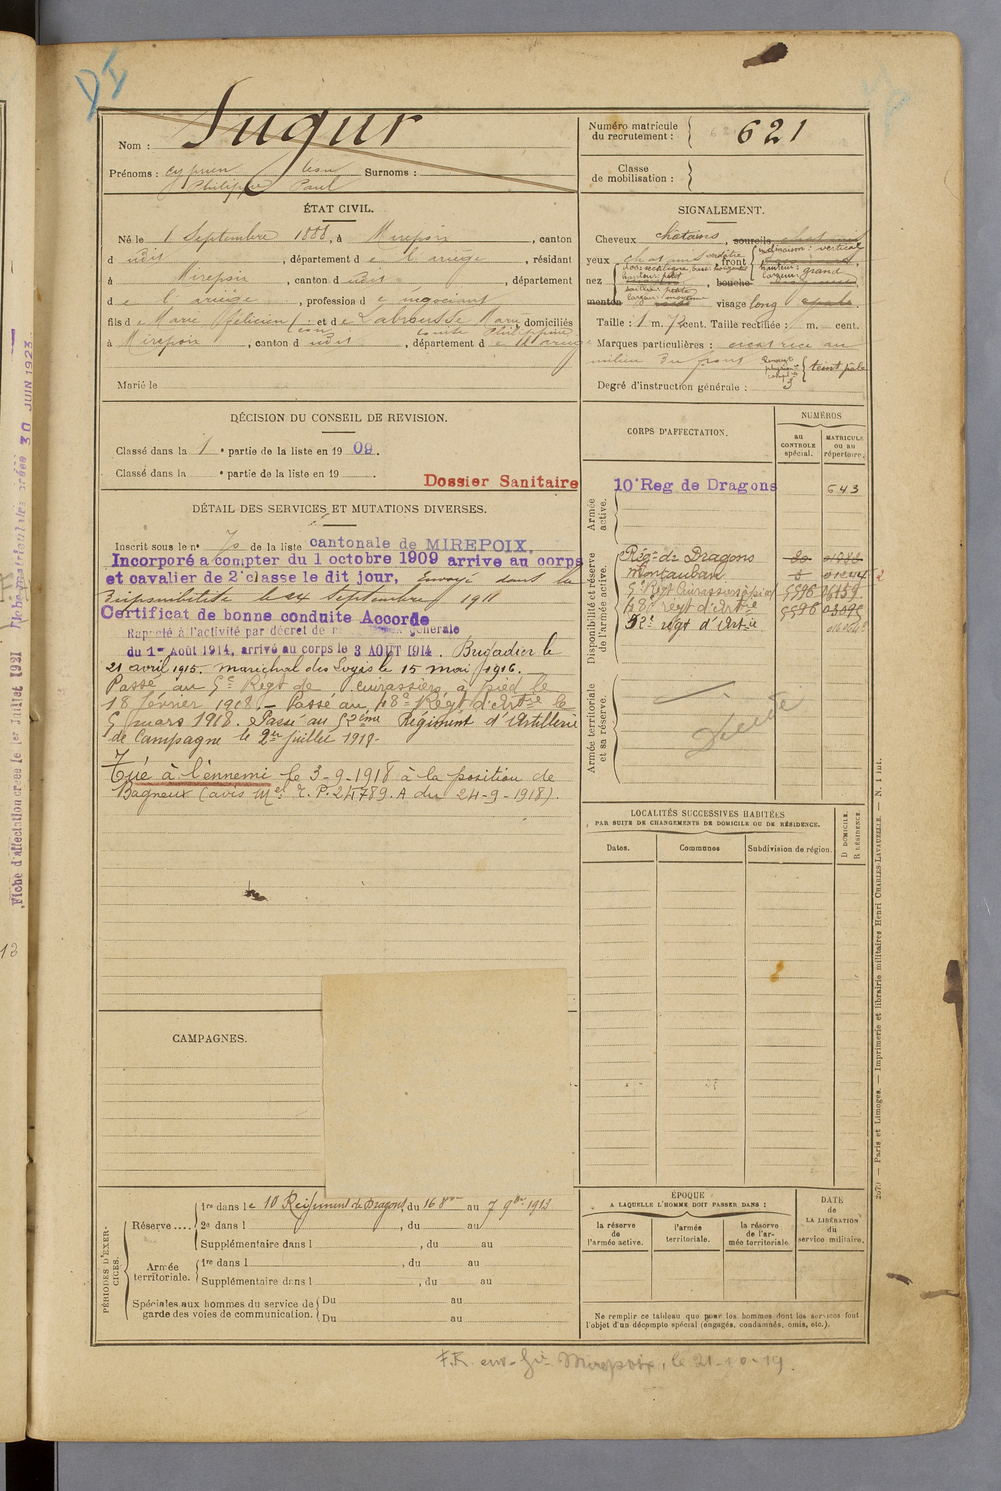 Nom : Sugur
Prénoms : Cyprien Léon Surnoms :
Philippe Paul
Numéro matricule du recrutement : 621
Classe de mobilisation :
ÉTAT CIVIL.
Né le 1 Septembre 1888, à Mirepoix, canton
d udit, département de l'ariège, résidant
à Mirepoix, canton d udit, département
de l'ariège, profession de négociant
fils de Marie Félicien Léon et de Labrousse Marie domiciliés
Louise Philippine
à Mirepoix, canton d udit, département de l'ariège
Marié le
SIGNALEMENT.
Cheveux châtains, sourcils châtains
yeux châtains verdâtre, front inclinaison : verticale
hauteur : grand
largeur :
nez dos : rectiligne, base : horizontale
hauteur : petit
saillie : petite
largeur : moyenne
, bouche
menton visage long
Taille : 1 m. 72 cent. Taille rectifiée : m. cent.
Marques particulières : cicatrice au
milieu du front teint pâle
Degré d'instruction générale : 3
DÉCISION DU CONSEIL DE REVISION.
Classé dans la 1e partie de la liste en 1909.
Classé dans la e partie de la liste en 19 .
Dossier Sanitaire
DÉTAIL DES SERVICES ET MUTATIONS DIVERSES.
Inscrit sous le no de la liste cantonale de MIREPOIX.
Incorporé a compter du 1 octobre 1909 arrive au corps
et cavalier de 2e classe le dit jour, Envoyé dans la
disponibilité le 24 Septembre 1911
Certificat de bonne conduite Accorde
Rappelé à l'activité par décret de générale
du 1er Août 1914, arrivé au corps le 3 AOUT 1914. Brigadier le
21 avril 1915. Maréchal des Logis le 15 mai 1916.
Passé au 5e Régt de Cuirassiers à pied le
18 février 1918. - Passé au 18e Régt d'Artie le
5 mars 1918. Passé au 52eme Régiment d'Artillerie
de Campagne le 2er juillet 1918.
Tué à l'ennemi le 3-9-1918 à la position de
Bagneux (avis Mel r. P. 24789. A du 24-9-1918).
CORPS D'AFFECTATION.
NUMÉROS
AU CONTROLE spécial.
MATRICULE OU AU répertoire.
Armée active.
10e Reg de Dragons 643
Disponibilité et réserve de l'armée active.
Régt de Dragons
Montauban
5e Régt Cuirassiers à pied 5596 06459
18e regt d'Artie 5596
52e regt d'Artie
Armée territoriale et sa réserve.
Décédé
LOCALITÉS SUCCESSIVES HABITÉES
PAR SUITE DE CHANGEMENTS DE DOMICILE OU DE RÉSIDENCE.
Dates. Communes Subdivision de région. D DOMICILE. R RÉSIDENCE.
CAMPAGNES.
PÉRIODES D'EXERCICES.
Réserve....
1re dans le 10 Régiment de Dragons du 16 8bre au 7 9bre 1913
2e dans l , du au
Supplémentaire dans l , du au
Armée territoriale.
1re dans l , du au
Supplémentaire dans l , du au
Spéciales aux hommes du service de garde des voies de communication.
Du au
Du au
ÉPOQUE
A LAQUELLE L'HOMME DOIT PASSER DANS :
la réserve de l'armée active.
l'armée territoriale.
la réserve de l'armée territoriale
DATE de LA LIBÉRATION du service militaire.
Ne remplir ce tableau que pour les hommes dont les services font
l'objet d'un décompte spécial (engagés, condamnés, omis, etc.).
F.R. env. Gie Mirepoix, le 21-10-19.
Paris et Limoges. — Imprimerie et librairie militaires Henri CHARLES-LAVAUZELLE. — N. 1 int.
Fiche d'affectation créée le 1er Juillet 1921
Fiche matriculaire créée 30 JUIN 1923